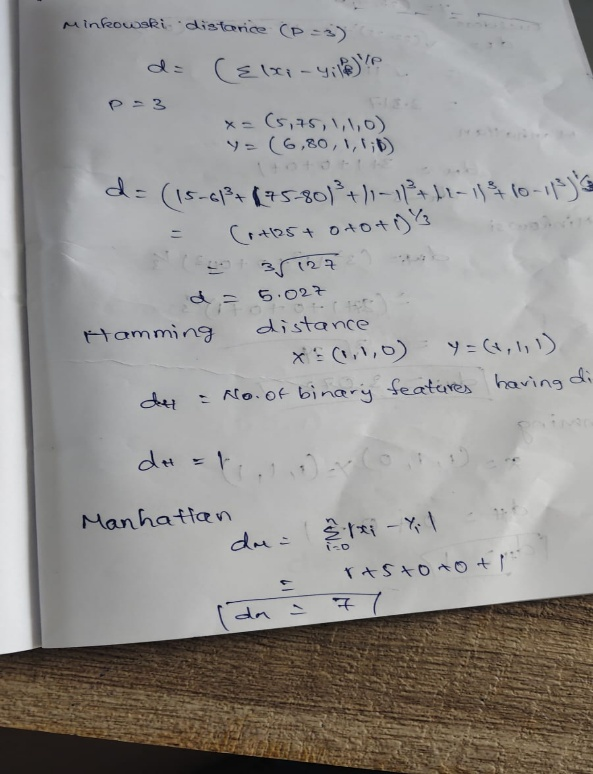 Minkowski distance (p=3)
d = (Σ|xi - yi|^p)^1/p
p = 3
x = (5,75,1,1,0)
y = (6,80,1,1,1)
d = (|5-6|³ + |75-80|³ + |1-1|³ + |1-1|³ + |0-1|³)^1/3
= (1+125+0+0+1)^1/3
= 3√127
d = 5.027
Hamming distance
x = (1,1,0) y = (1,1,1)
dH = No. of binary features having di
dH = 1
Manhattan
dM = Σ i=0 n |xi - yi|
= 1+5+0+0+1
dM = 7